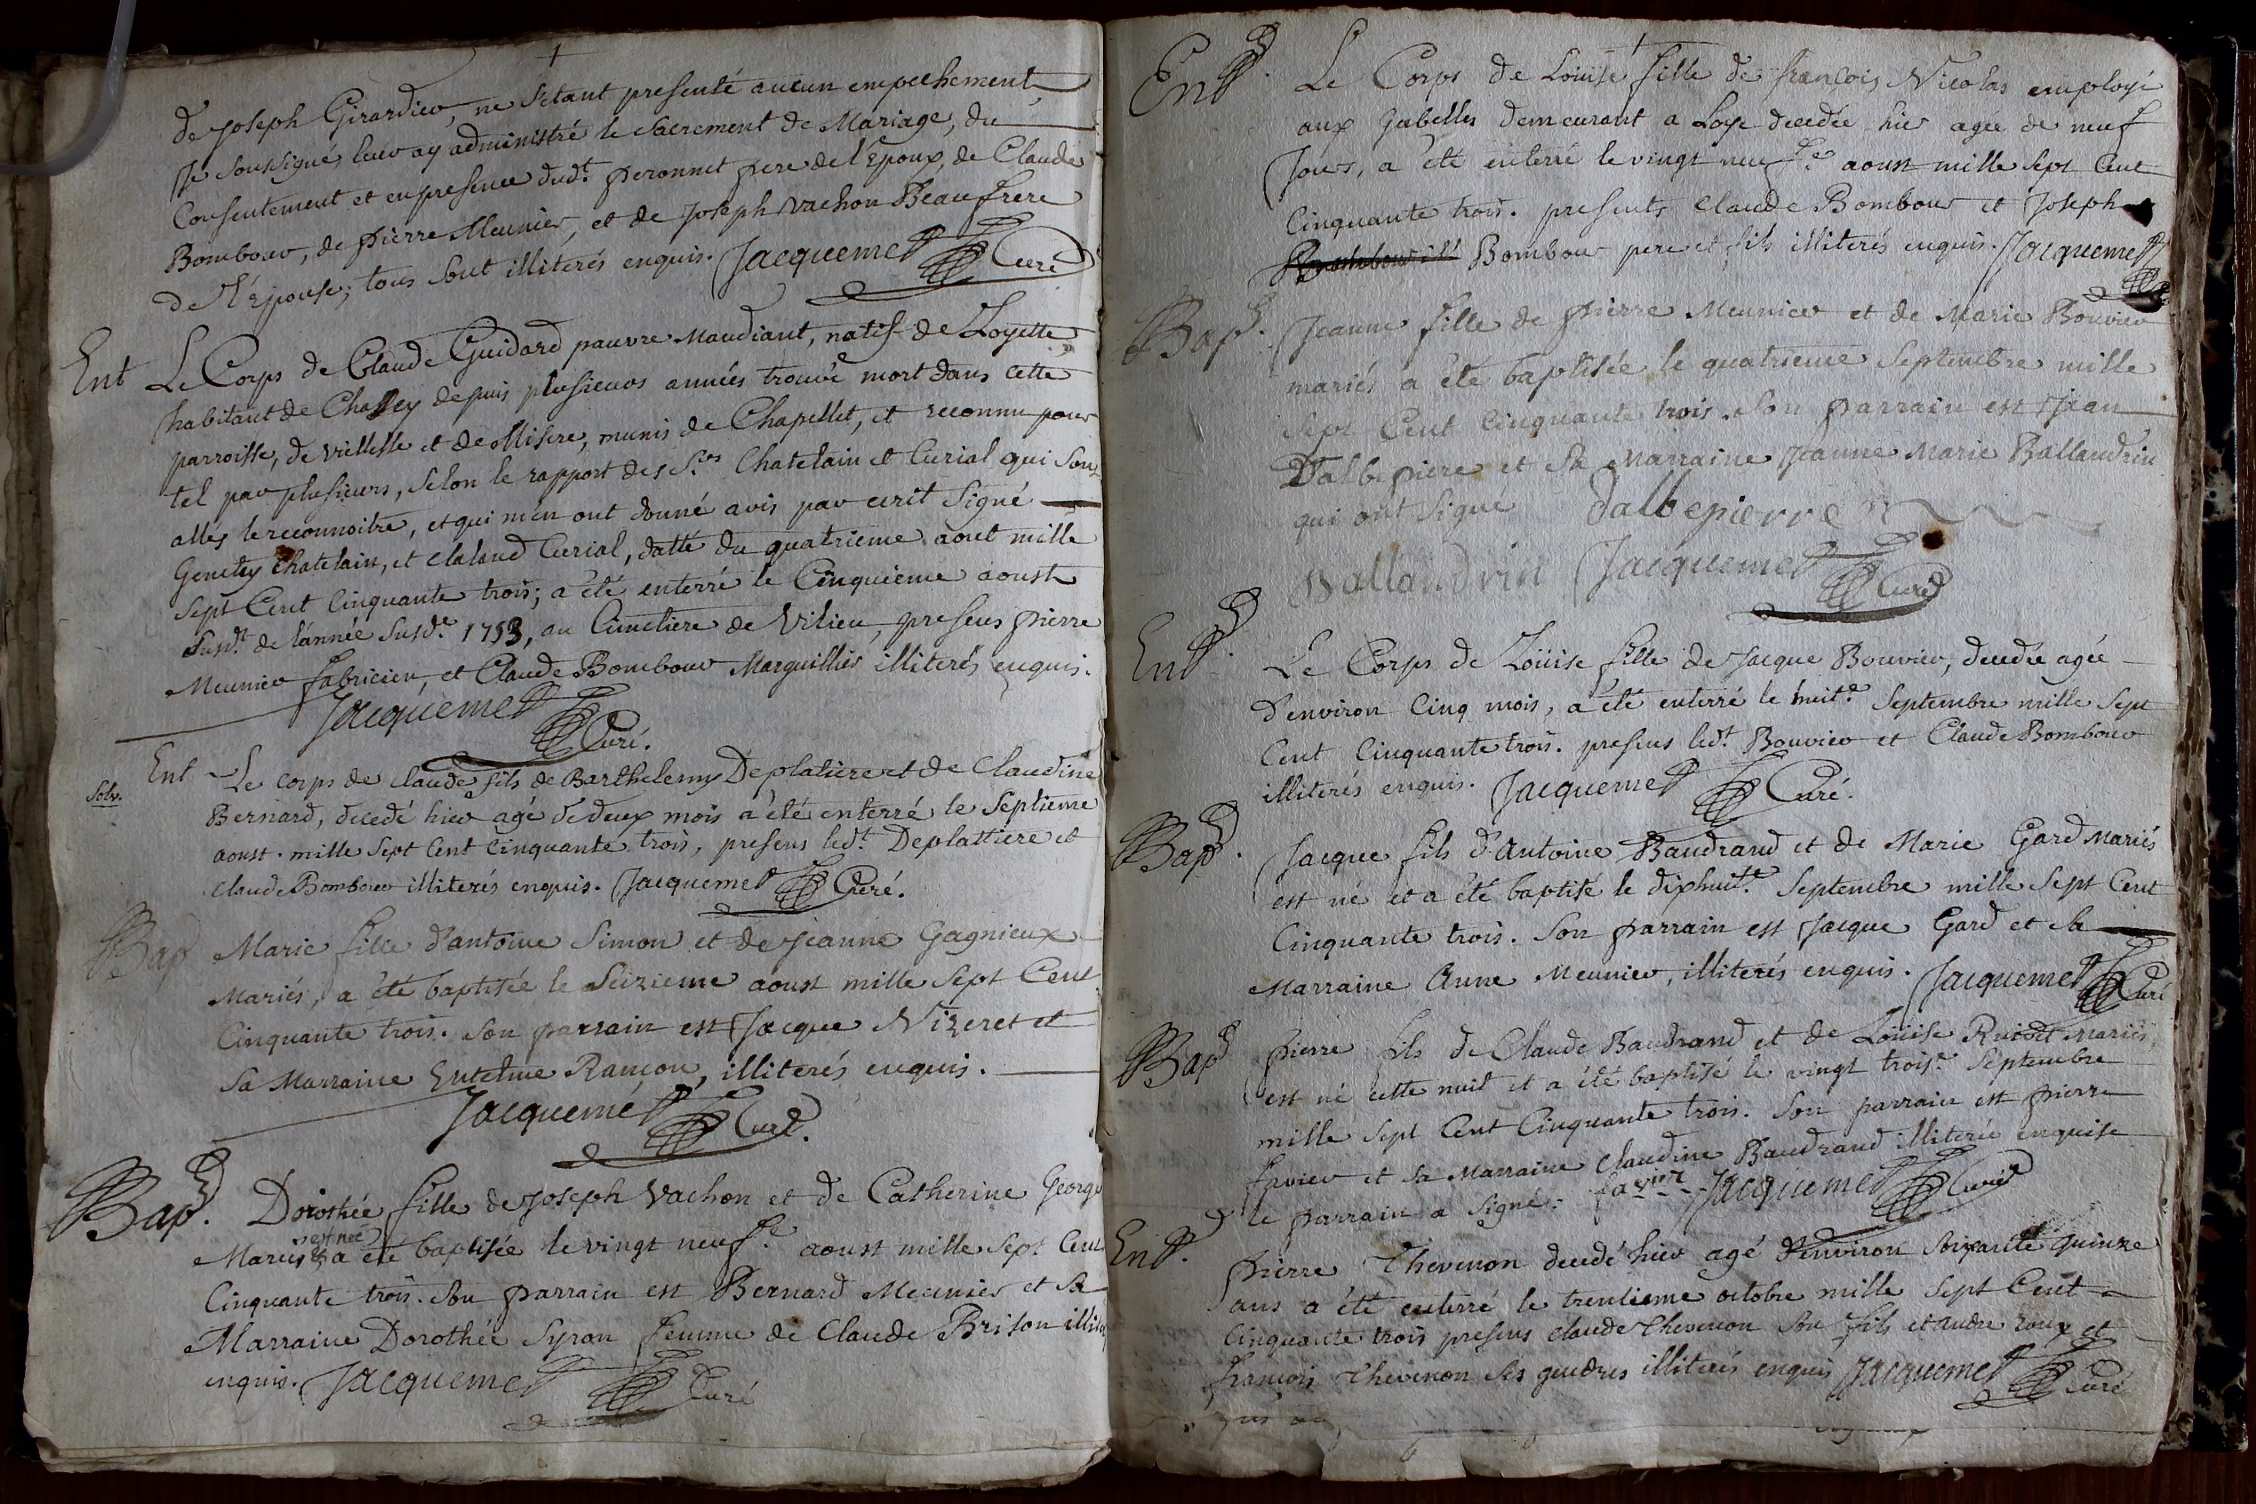 de Joseph Girardier, ne s'etant presenté aucun empechement,
Je soussigné leur ay administré le Sacrement de Mariage, du
Consentement et en presence dud.t peronnet pere de l'Epoux, de Claude
Bombour, de pierre Meunier, et de Joseph Vachon Beaufrere
de l'Epouse, tous sont illiterés enquis. Jacquemet Curé
Ent Le Corps de Claude Guidard pauvre Mandiant, natif de Loyette
habitant de Chaley depuis plusieurs années trouvé mort dans cette
parroisse, de viellesse et de Misere, munis de Chapellet, et reconnu pour
tel par plusieurs, selon le rapport des S.rs Chatelain et Curial qui sont
allés le reconnoitre, et qui m'en ont donné avis par ecrit Signé
Genetey Chatelain, et Claland Curial, datté du quatrieme aout mille
Sept Cent Cinquante trois; a été enterré le Cinquieme aoust
Susd.t de l'année Susd.e 1753, au Cimetiere de Vilieu, presens pierre
Meunier fabricien, et Claude Bombour Marguillier illiterés enquis.
Jacquemet
Curé.
Ent Le corps de Claude fils de Barthelemy Deplatiere et de Claudine
Solv.
Bernard, decedé hier agé de deux mois a été enterré le Septieme
aoust mille Sept Cent Cinquante trois, presens led.t Deplattiere et
Claude Bombour illiterés enquis. Jacquemet Curé.
Bap Marie fille d'antoine Simon et de Jeanne Gagnieux
Mariés, a été baptisée le Seizieme aoust mille Sept Cent
Cinquante trois. Son parrain est Jacque Nizeret et
Sa Marraine Entelme Rançon, illiterés enquis.
Jacquemet Curé.
Bap. Dorothée fille de Joseph Vachon et de Catherine George
est née
Mariés & a été baptisée le vingt neuf.e aoust mille Sept Cent
Cinquante trois. Son parrain est Bernard Meunier et Sa
Marraine Dorothée Syron femme de Claude Brison illi
enquis. Jacquemet Curé
Ent. Le Corps de Loüise fille de françois Nicolas employé
aux gabelles demeurant a Loye decedée hier agée de neuf
Jours, a été enterré le vingt neuf.e aoust mille Sept Cent
Cinquante trois. presents Claude Bombour et Joseph
Bombour pere et fils illiterés enquis. Jacquemet
Bap. Jeanne fille de pierre Meunier et de Marie Bouvier
mariés a été baptisée le quatrieme Septembre mille
Sept Cent Cinquante trois. Son parrain est Jean
Dalbepiere et Sa Marraine Jeanne Marie Ballandrin
qui ont Signé dalbepierre
Ballandrin Jacquemet Curé
Ent. Le Corps de Loüise fille de Jacque Bouvier, decedée agée
d'environ Cinq mois, a été enterré le huit.e Septembre mille Sept
Cent Cinquante trois. presens led.t Bouvier et Claude Bombour
illiterés enquis. Jacquemet Curé.
Bap. Jacque fils d'Antoine Baudrand et de Marie Gard Mariés
est né et a été baptisé le dixhuit.e Septembre mille Sept Cent
Cinquante trois. Son parrain est Jacque Gard et Sa
Marraine Anne Meunier, illiterés enquis. Jacquemet Curé
Bap pierre fils de Claude Baudrand et de Loüise Mariés,
est né cette nuit et a été baptisé le vingt trois.e Septembre
mille Sept Cent Cinquante trois. Son parrain est pierre
favier et Sa Marraine Claudine Baudrand illiterée enquise
le parrain a Signé. favier Jacquemet Curé
Ent. pierre Thevenon decedé hier agé d'environ Soixante quinze
ans a été enterré le trentieme octobre mille Sept Cent
Cinquante trois presens Claude Thevenon Son fils et andre roux et
françois Thevenon Ses gendres illiterés enquis Jacquemet Curé